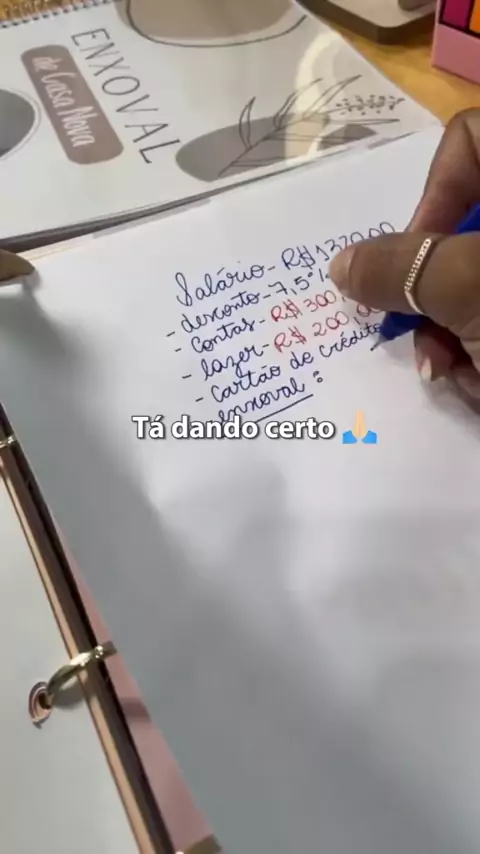 ENXOVAL
de Casa Nova
Salário - R$ 1320,00
- desconto - 7,5%
- Contas - R$ 300,
- lazer - R$ 200,00
- Cartão de crédito
enxoval:
Tá dando certo 🙏🏻